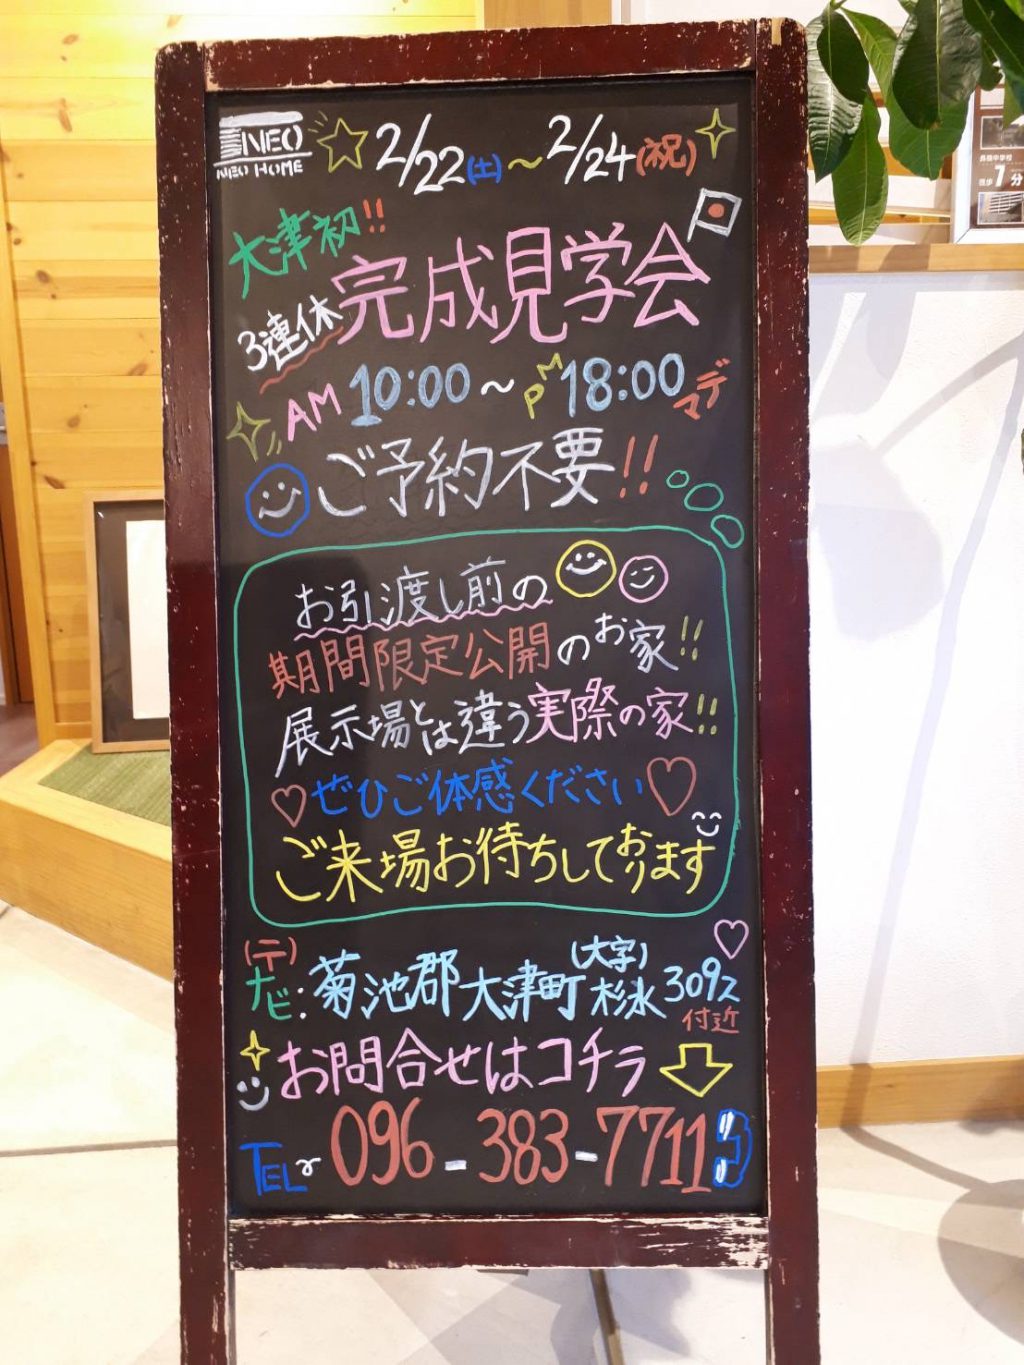 NEO
NEO HOME
2/22(土)~2/24(祝)
大津初!!
3連休完成見学会
AM 10:00~PM 18:00マデ
ご予約不要!!
お引渡し前の
期間限定公開のお家!!
展示場とは違う実際の家!!
ぜひご体感ください
ご来場お待ちしております
(〒)
ナビ:菊池郡大津町(大字)杉水3092
付近
お問合せはコチラ
TEL 096-383-7711
長嶺中学校
徒歩7分